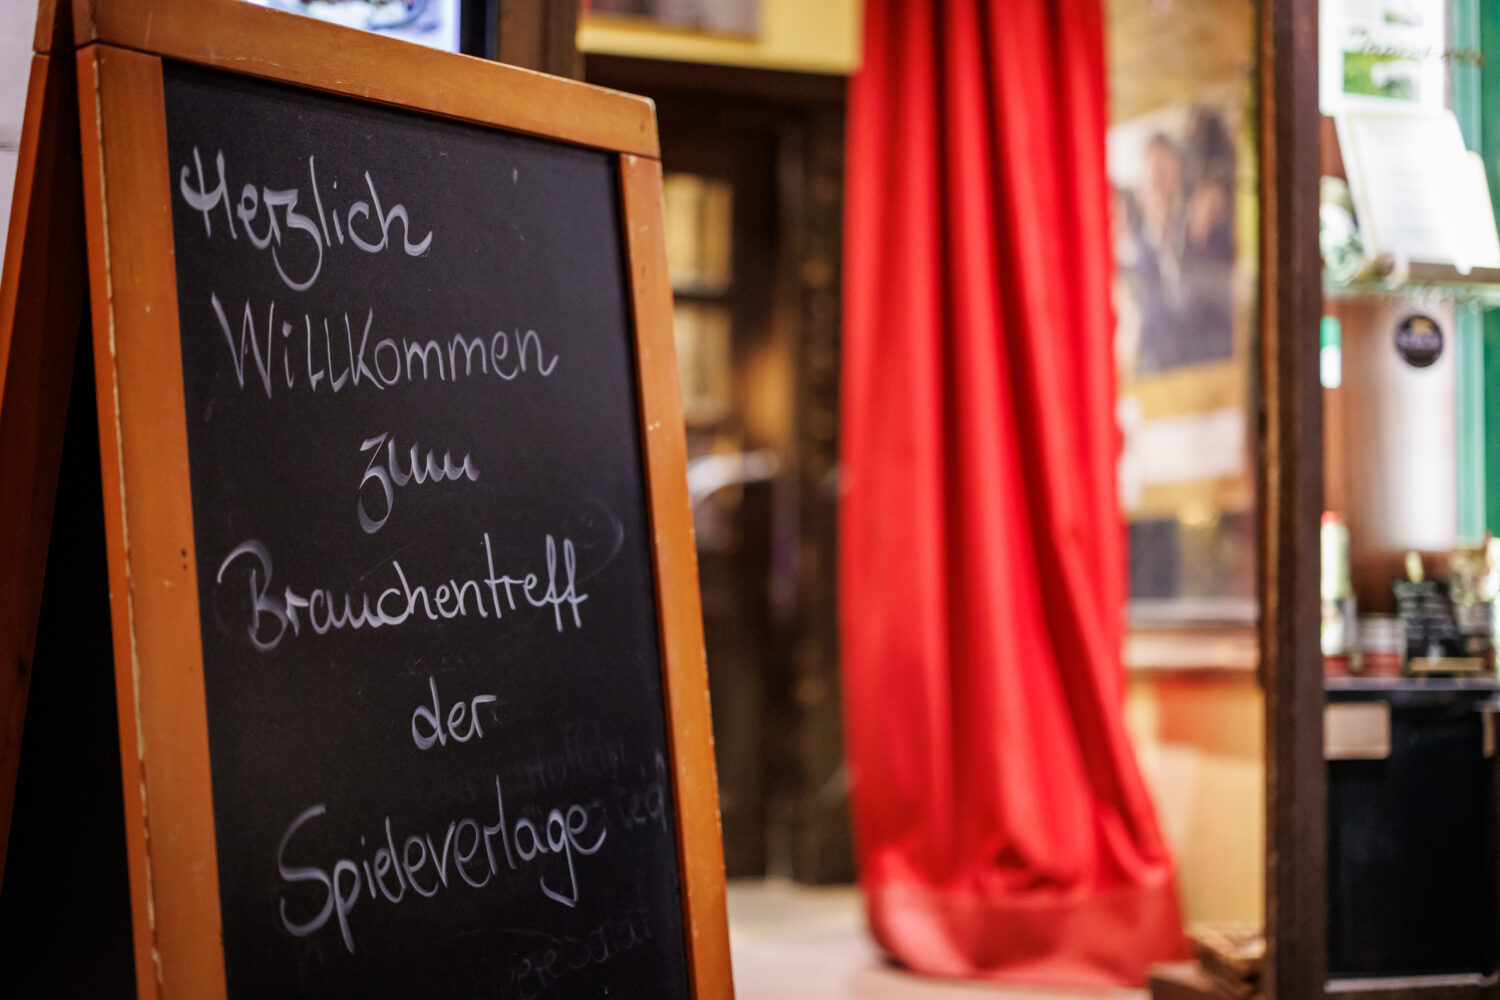 Herzlich
Willkommen
zum
Brauchentreff
der
Spieleverlage